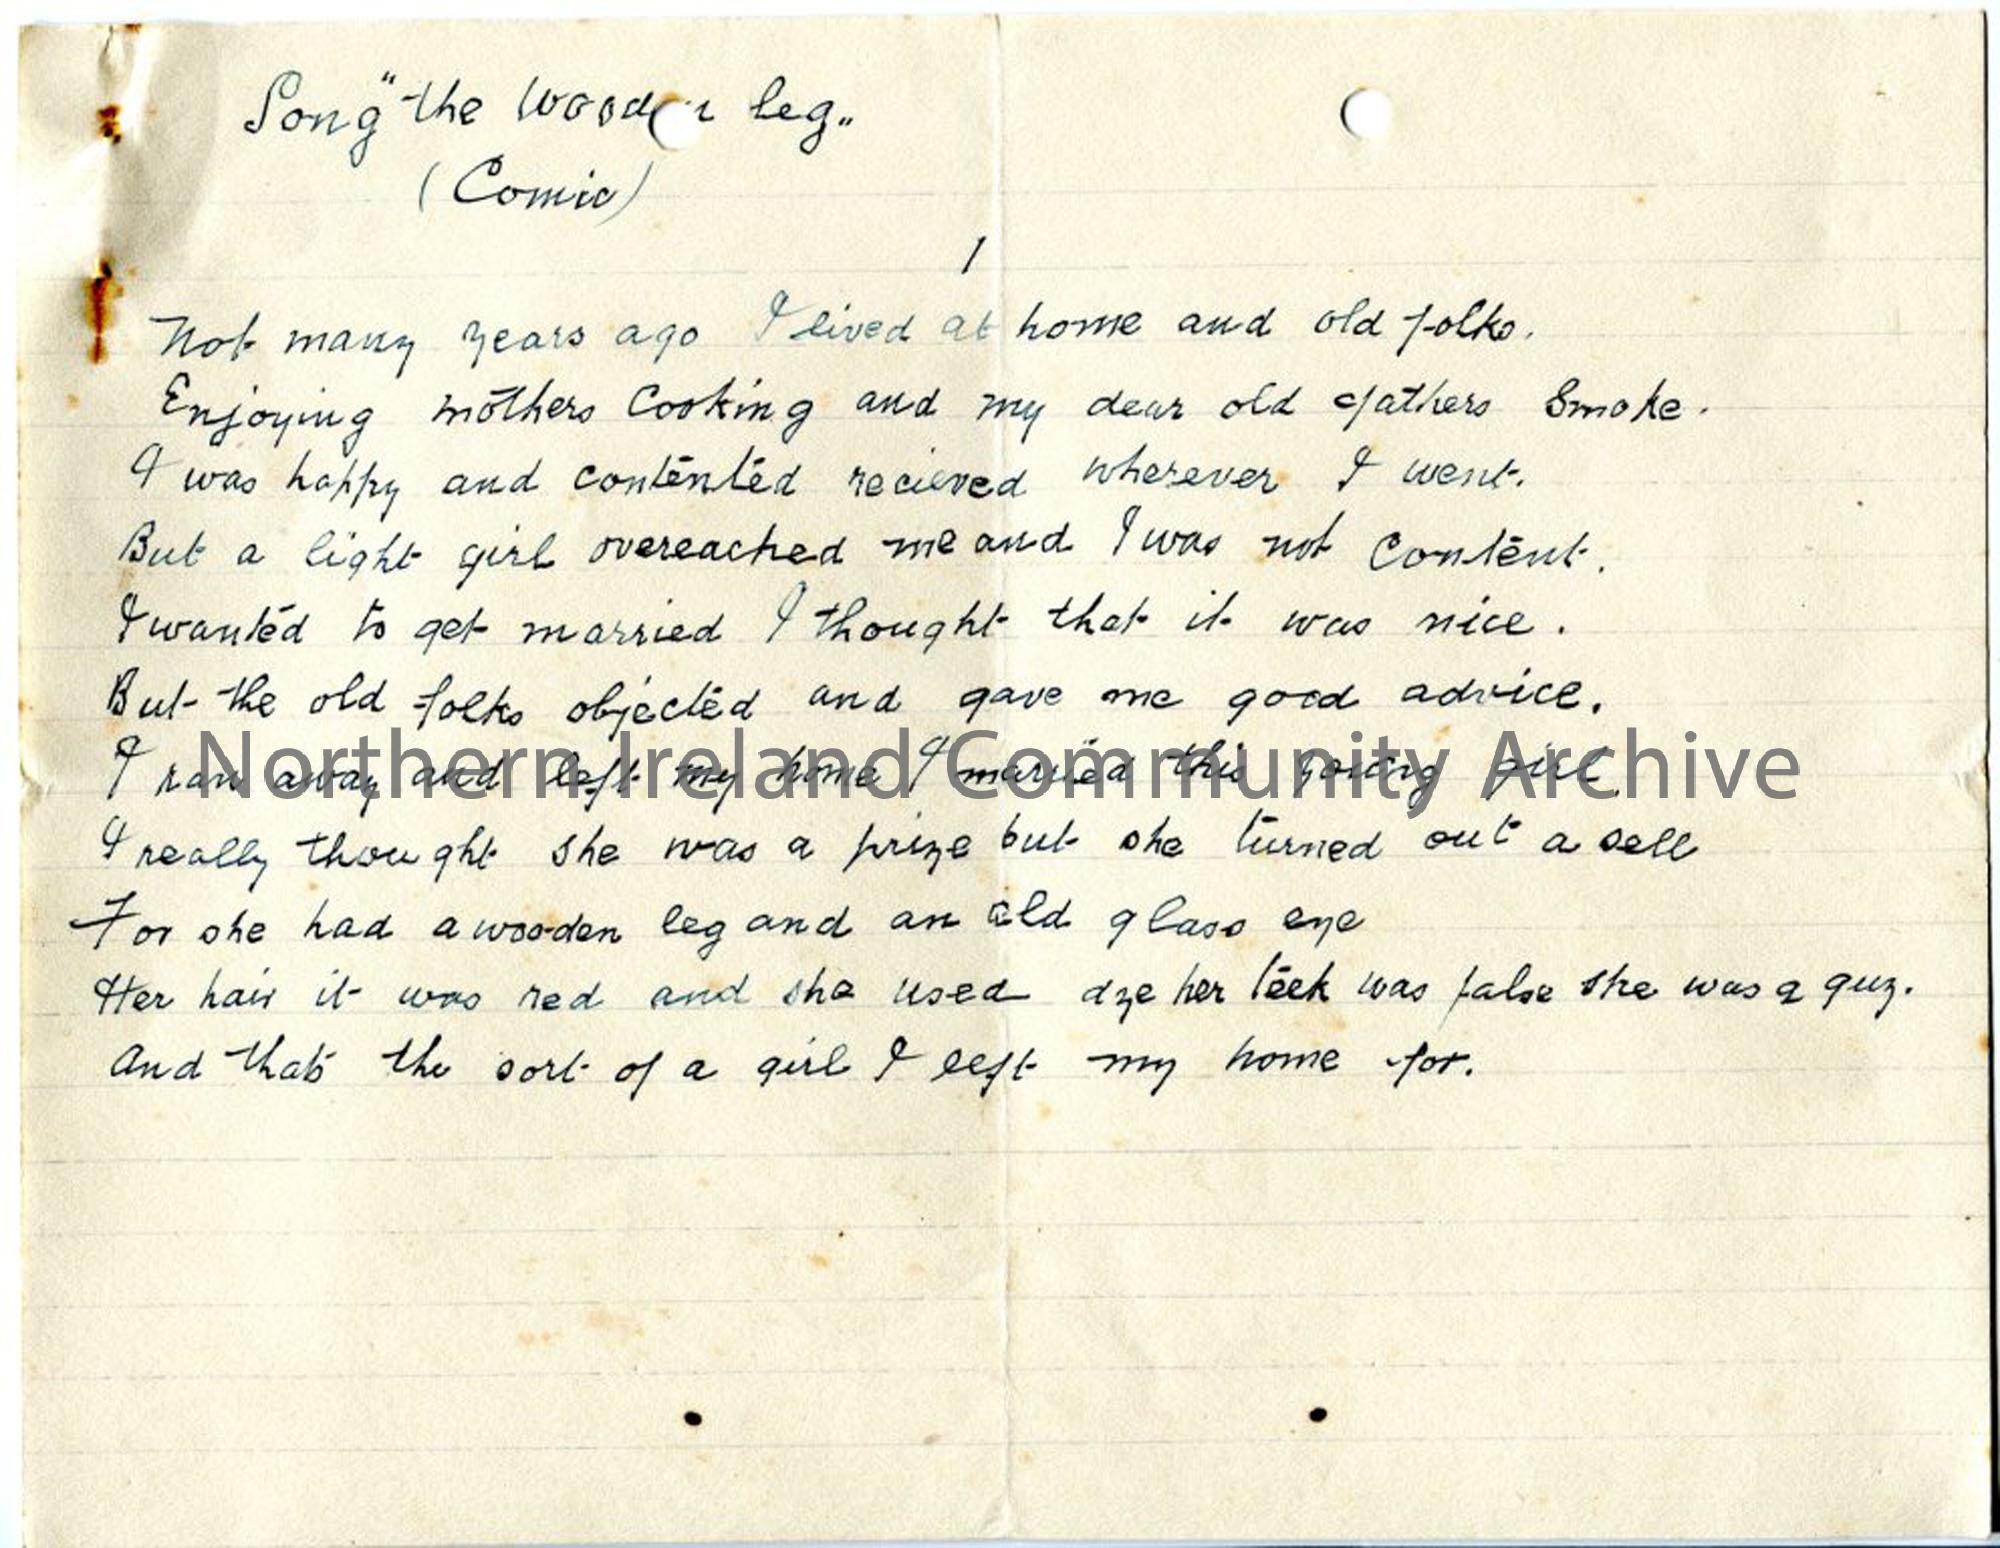 Song "the Wooden leg„
(Comic)
1
Not many years ago I lived at home and old folks.
Enjoying mothers Cooking and my dear old fathers Smoke.
I was happy and contented recieved wherever I went.
But a light girl overeached me and I was not Content.
I wanted to get married I thought that it was nice.
But the old folks objected and gave me good advice.
I ran away and left my home I married this young girl.
I really thought she was a prize but she turned out a sell
For she had a wooden leg and an old glass eye
Her hair it was red and she used dye her teek was false she was a guy.
And thats the sort of a girl I left my home for.
Northern Ireland Community Archive